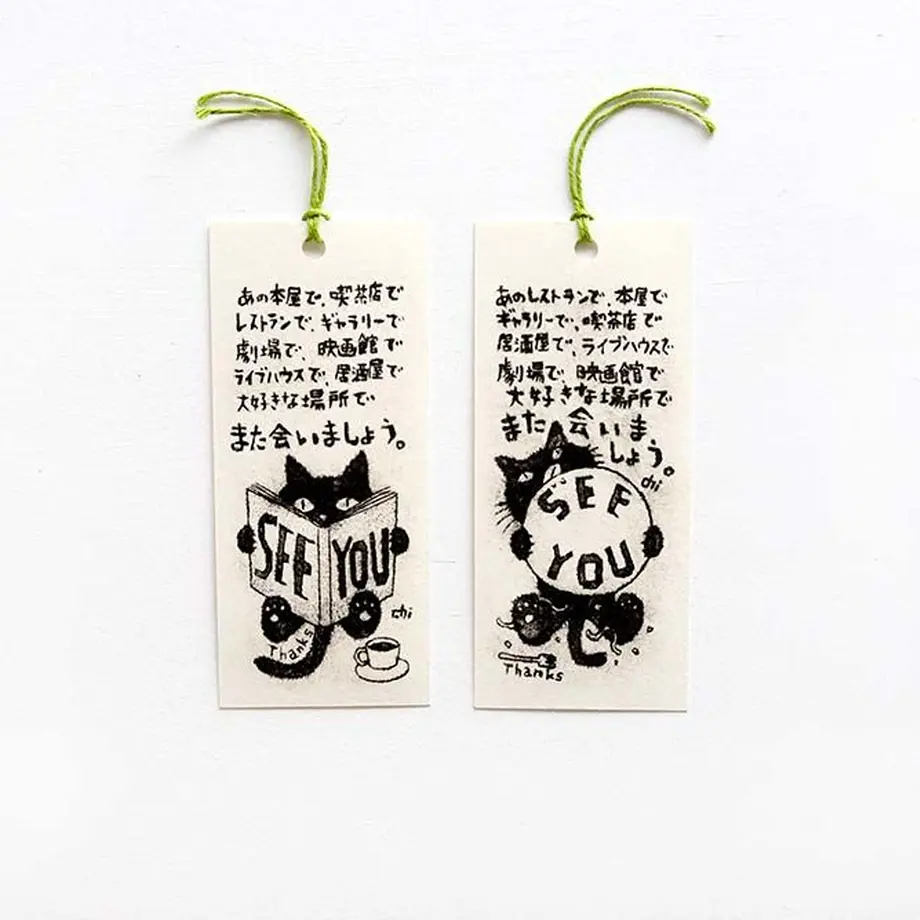 あの本屋で、喫茶店で
レストランで、ギャラリーで
劇場で、映画館で
ライブハウスで、居酒屋で
大好きな場所で
また会いましょう。
SEE YOU
chi
Thanks
あのレストランで、本屋で
ギャラリーで、喫茶店で
居酒屋で、ライブハウスで
劇場で、映画館で
大好きな場所で
また会いま
しょう。
chi
SEE
YOU
Thanks